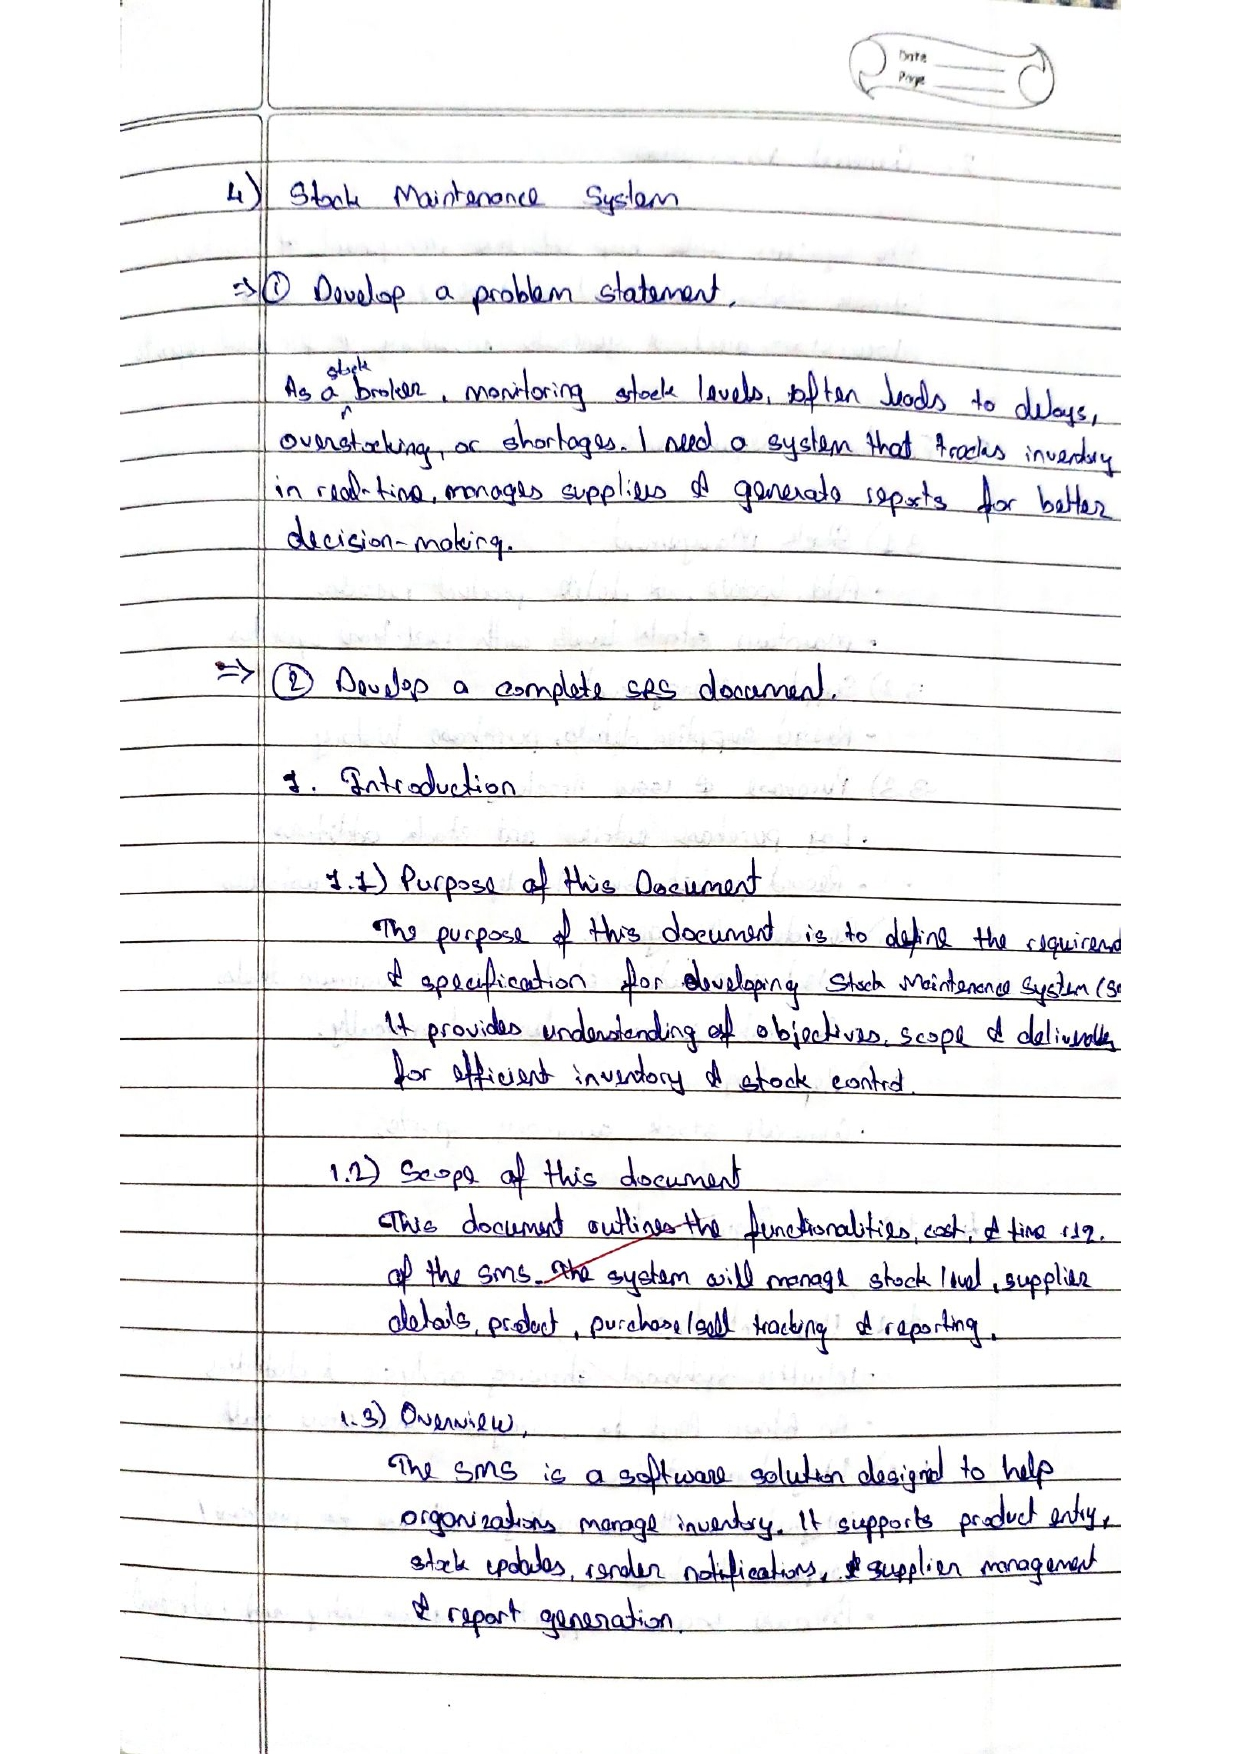 Date
Page
4) Stock Maintenance System
=> ① Develop a problem statement.
stock
As a broker, monitoring stock levels, often leads to delays,
overstocking, or shortages. I need a system that tracks inventory
in real-time, manages suppliers & generate reports for better
decision-making.
=> ② Develop a complete SRS document.
1. Introduction
1.1) Purpose of this Document
The purpose of this document is to define the requirem
& specification for developing Stock Maintenance System (S
It provides understanding of objectives, scope & deliverables
for efficient inventory & stock control.
1.2) Scope of this document
This document outlines the functionalities, cost, & time req.
of the SMS. The system will manage stock level, supplier
details, product, purchase/sell tracking & reporting.
1.3) Overview,
The SMS is a software solution designed to help
organizations manage inventory. It supports product entry,
stock updates, notifications, & supplier management
& report generation.